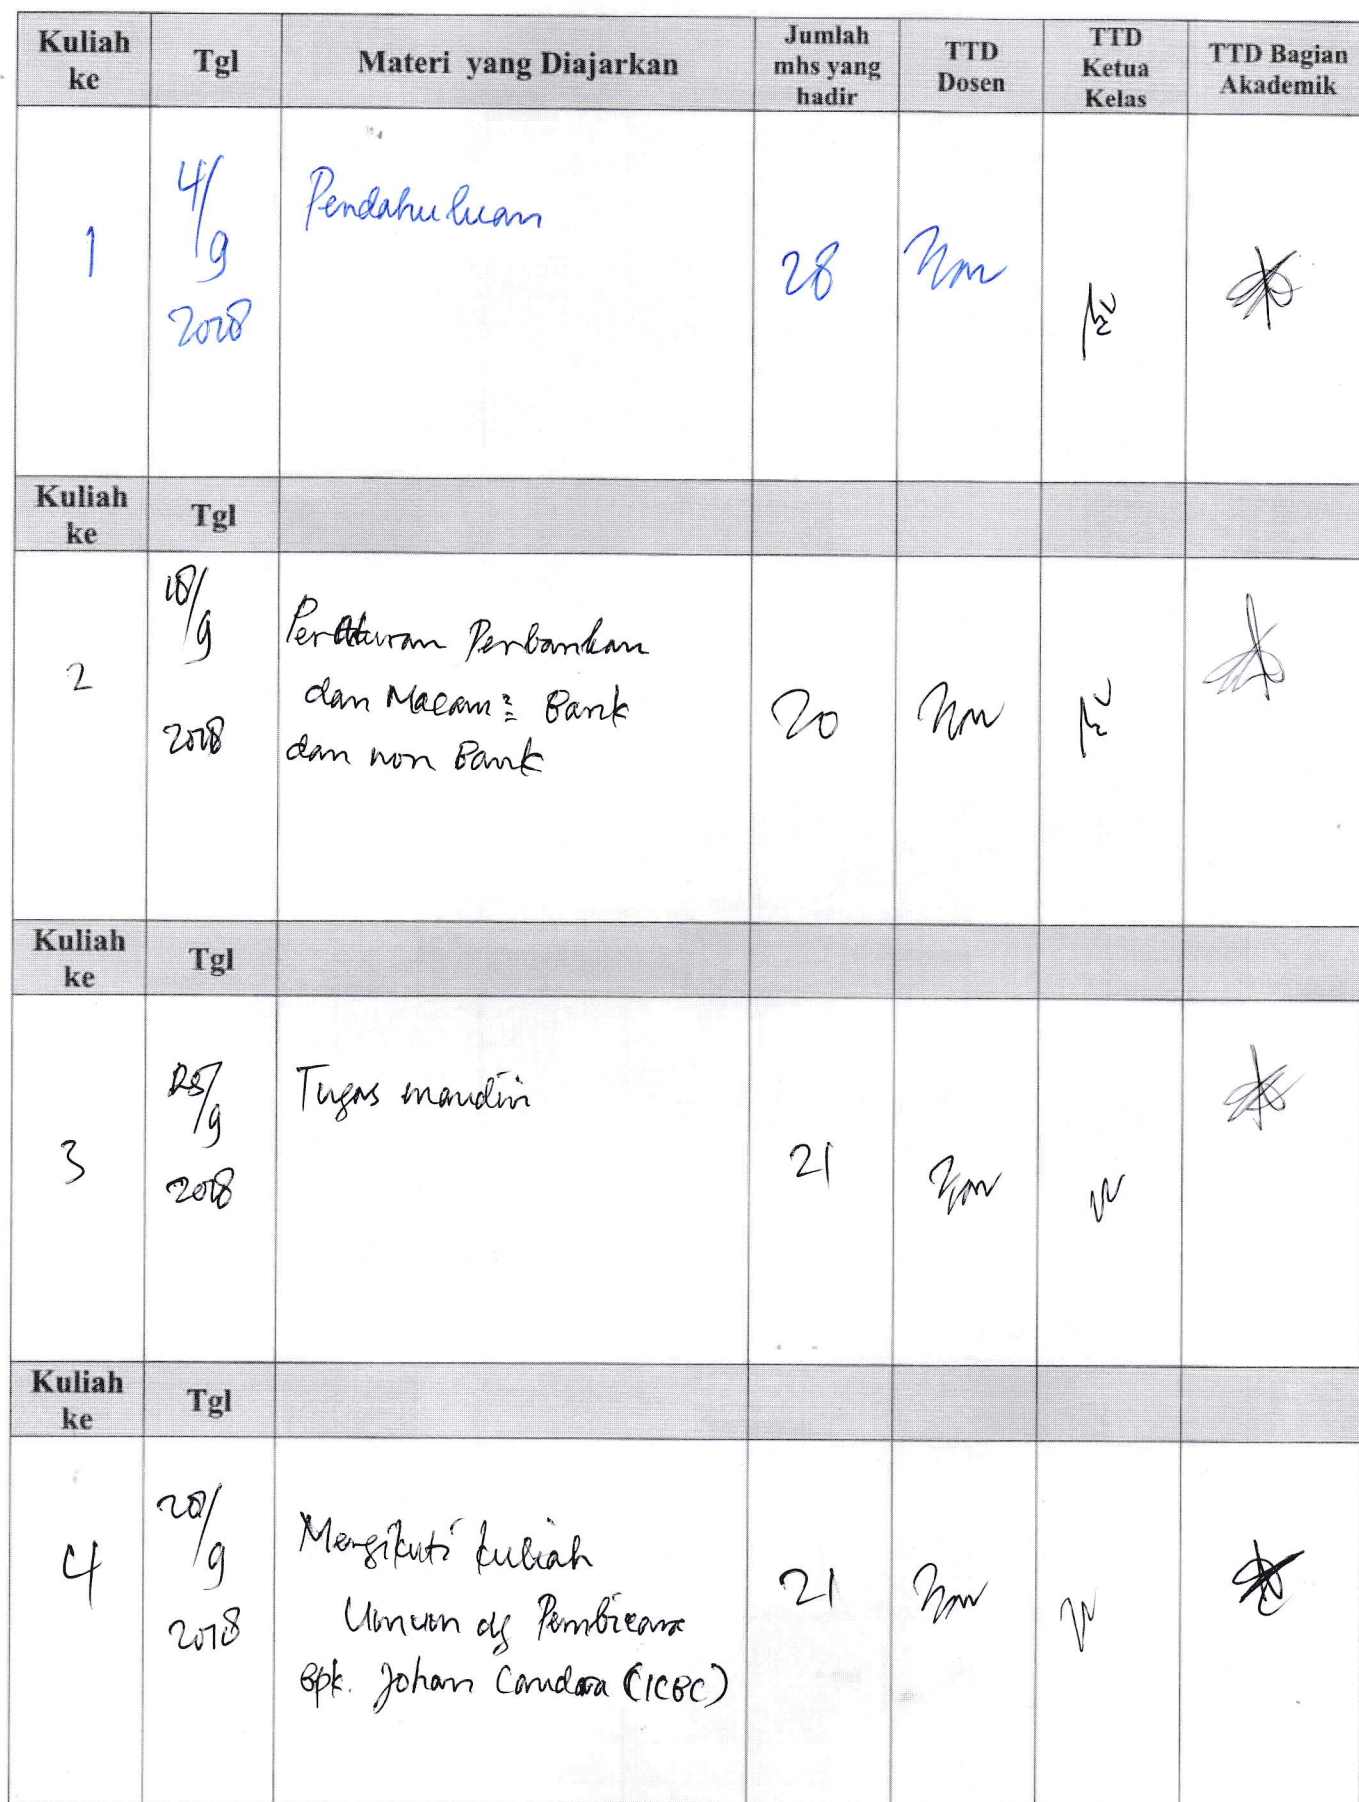 Kuliah ke
Tgl
Materi yang Diajarkan
Jumlah mhs yang hadir
TTD Dosen
TTD Ketua Kelas
TTD Bagian Akademik
1
4/9
2018
Pendahuluan
28
Kuliah ke
Tgl
2
18/9
2018
Peraturan Perbankan
dan Macam2 Bank
dan non Bank
20
Kuliah ke
Tgl
3
25/9
2018
Tugas mandiri
21
Kuliah ke
Tgl
4
/9
2018
Mengikuti kuliah
Umum dg Pembicara
Bpk. Johan Candara (ICBC)
21